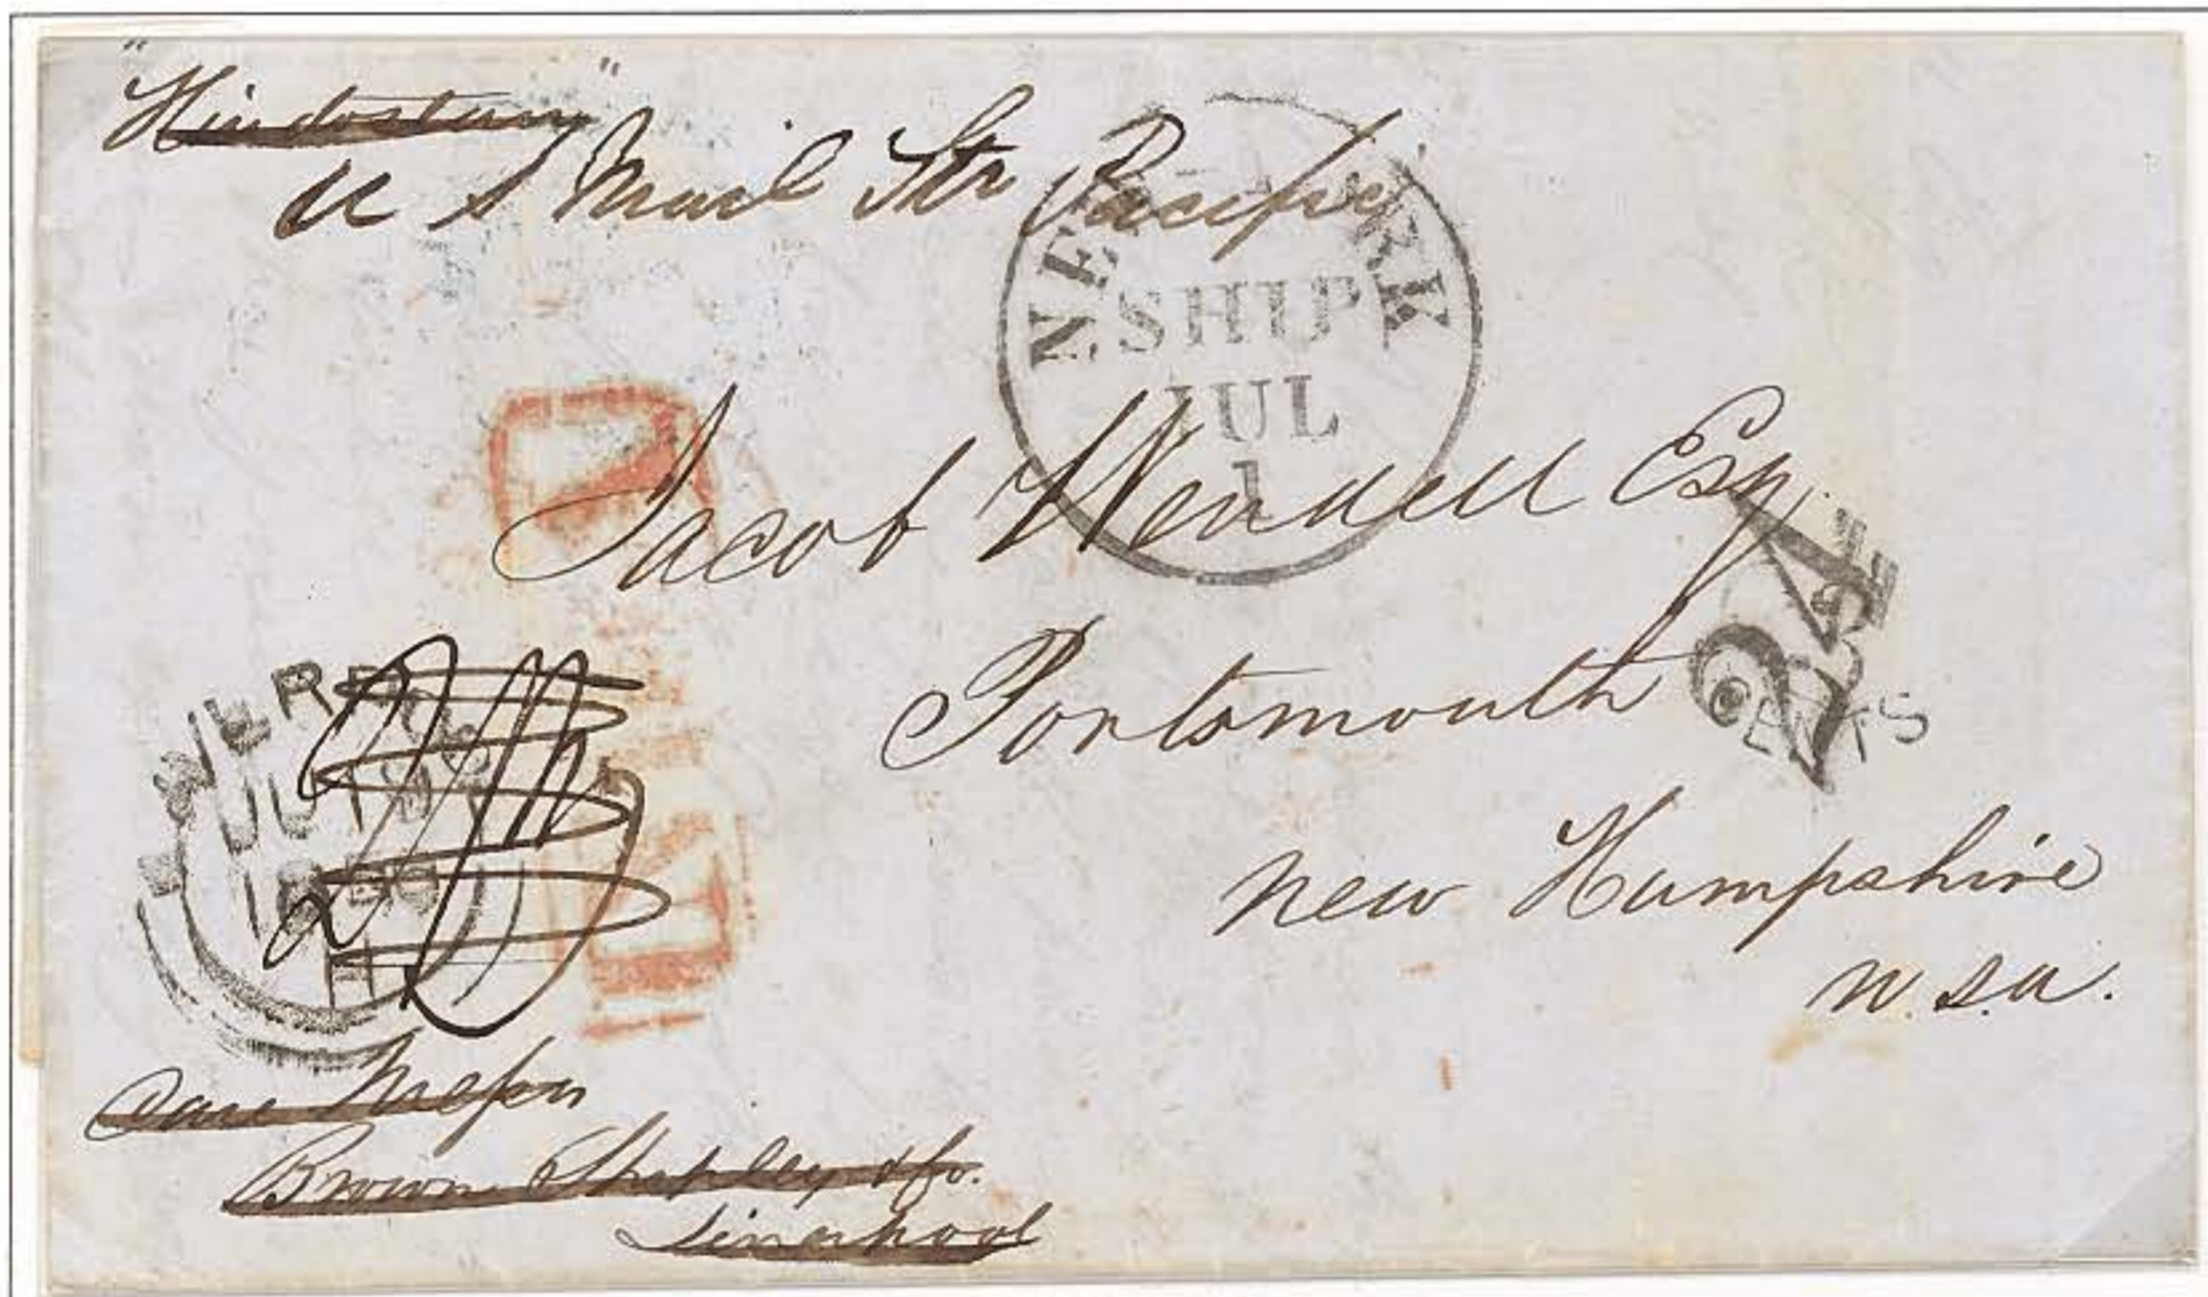 "Hindostan"
U S Mail Str Pacific
NEW YORK
SHIP
JUL
1
Jacob Wendell Esq
Portsmouth
New Hampshire
U.S.A.
CENTS
LIVERPOOL
JU 19
1850
H
Care Messrs
Brown Shipley & Co.
Liverpool